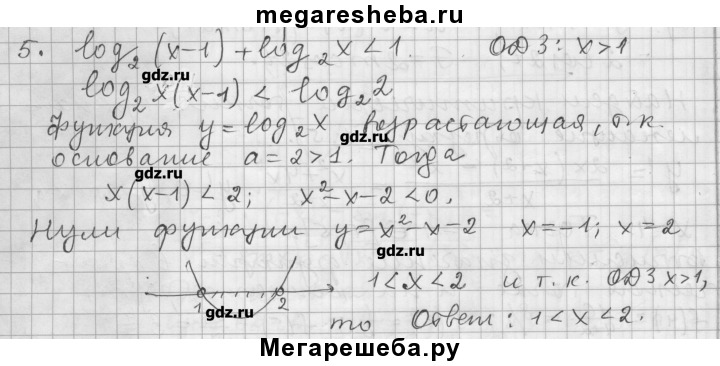 megaresheba.ru
5. log₂(x-1)+log₂x<1. ОДЗ: x>1
gdz.ru
log₂x(x-1) < log₂2
gdz.ru
Функция y=log₂x возрастающая, т.к.
gdz.ru
основание a=2>1. Тогда
x(x-1)<2; x²-x-2<0.
Нули функции y=x²-x-2 x=-1; x=2
gdz.ru
1 2 1<x<2 и т.к. ОДЗ x>1,
gdz.ru gdz.ru
то Ответ: 1<x<2.
Мегарешеба.ру